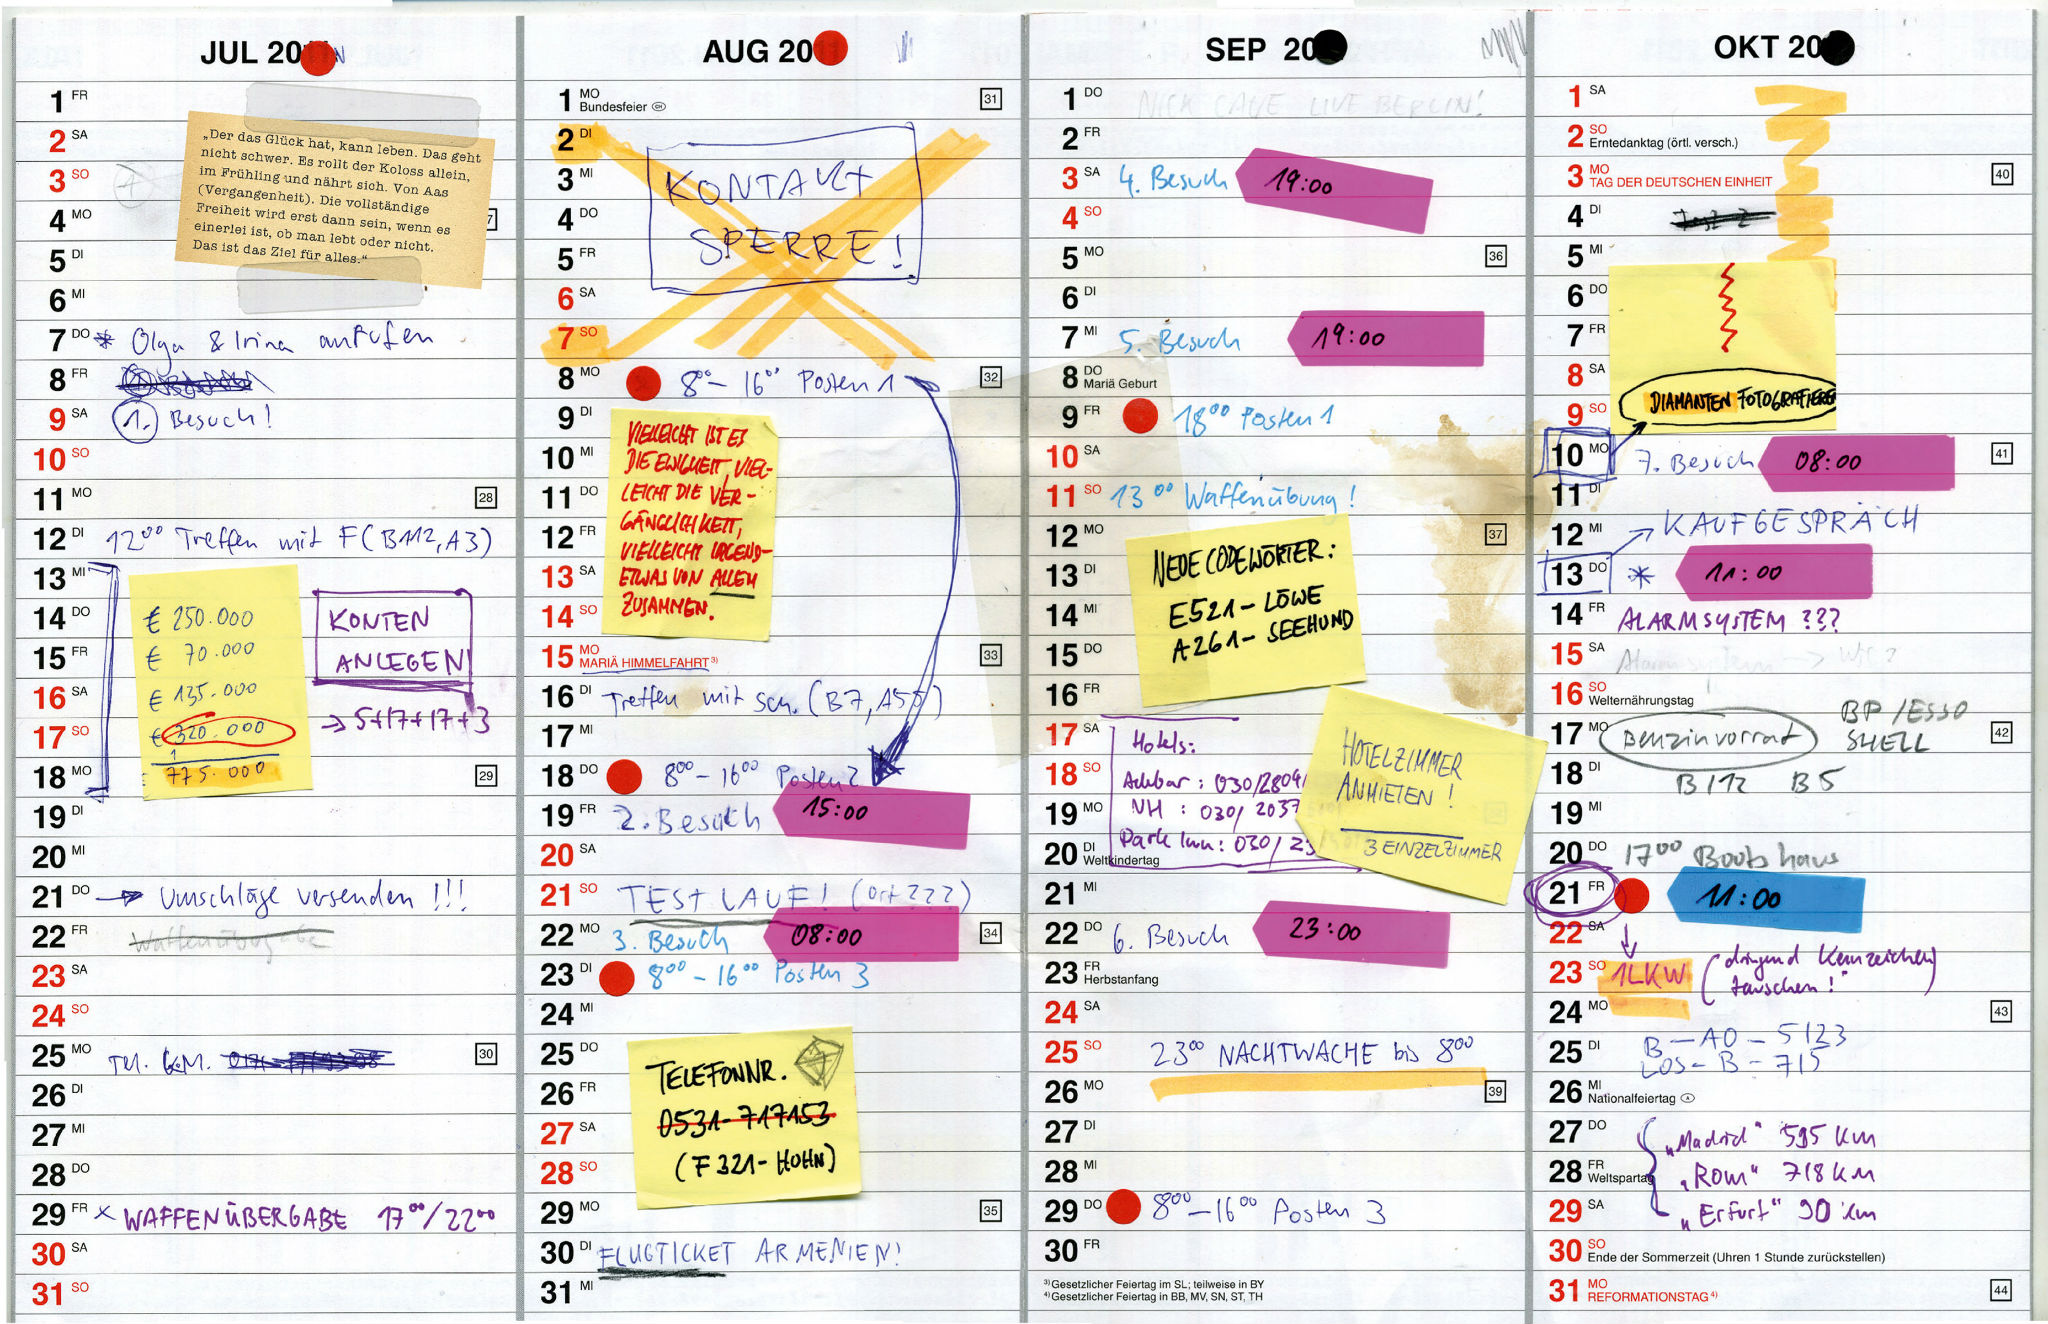 JUL 20
1 FR
2 SA
3 SO
4 MO
5 DI
6 MI
„Der das Glück hat, kann leben. Das geht
nicht schwer. Es rollt der Koloss allein,
im Frühling und nährt sich. Von Aas
(Vergangenheit). Die vollständige
Freiheit wird erst dann sein, wenn es
einerlei ist, ob man lebt oder nicht.
Das ist das Ziel für alles.“
7 DO * Olga & Irina anrufen
8 FR
9 SA 1. Besuch!
10 SO
11 MO 28
12 DI 12⁰⁰ Treffen mit F (B112, A3)
13 MI
14 DO
15 FR
16 SA
17 SO
18 MO 29
€ 250.000
€ 70.000
€ 135.000
€ 320.000
1
775.000
KONTEN
ANLEGEN!
→ 5+17+17+3
19 DI
20 MI
21 DO → Umschläge versenden !!!
22 FR Waffenübergabe
23 SA
24 SO
25 MO Tel. G.M. 30
26 DI
27 MI
28 DO
29 FR x WAFFENÜBERGABE 17⁰⁰/22⁰⁰
30 SA
31 SO
AUG 20
1 MO Bundesfeier CH 31
2 DI
3 MI
4 DO
5 FR
6 SA
7 SO
KONTAKT
SPERRE!
8 MO 8⁰⁰ – 16⁰⁰ Posten 1 32
9 DI
10 MI
11 DO
12 FR
13 SA
14 SO
VIELLEICHT IST ES
DIE EWIGKEIT, VIEL-
LEICHT DIE VER-
GÄNGLICHKEIT,
VIELLEICHT IRGEND-
ETWAS VON ALLEM
ZUSAMMEN.
15 MO MARIÄ HIMMELFAHRT ³⁾ 33
16 DI Treffen mit Sch. (B7, A55)
17 MI
18 DO 8⁰⁰ – 16⁰⁰ Posten 2
19 FR 2. Besuch 15:00
20 SA
21 SO TESTLAUF! (Ort ???)
22 MO 3. Besuch 08:00 34
23 DI 8⁰⁰ – 16⁰⁰ Posten 3
24 MI
25 DO
26 FR
27 SA
28 SO
TELEFONNR.
0531-717153
(F321-HUHN)
29 MO 35
30 DI FLUGTICKET ARMENIEN!
31 MI
SEP 20
1 DO NICK CAVE LIVE BERLIN!
2 FR
3 SA 4. Besuch 19:00
4 SO
5 MO 36
6 DI
7 MI 5. Besuch 19:00
8 DO Mariä Geburt
9 FR 18⁰⁰ Posten 1
10 SA
11 SO 13⁰⁰ Waffenübung!
12 MO 37
13 DI
14 MI
15 DO
16 FR
NEUE CODEWÖRTER:
E521 – LÖWE
A261 – SEEHUND
17 SA
18 SO
19 MO
20 DI Weltkindertag
Hotels:
Adrbar: 030/2804
NH: 030/2037
Park Inn: 030/23
HOTELZIMMER
ANMIETEN!
3 EINZELZIMMER
21 MI
22 DO 6. Besuch 23:00
23 FR Herbstanfang
24 SA
25 SO 23⁰⁰ NACHTWACHE bis 8⁰⁰
26 MO 39
27 DI
28 MI
29 DO 8⁰⁰ – 16⁰⁰ Posten 3
30 FR
³⁾ Gesetzlicher Feiertag im SL; teilweise in BY
⁴⁾ Gesetzlicher Feiertag in BB, MV, SN, ST, TH
OKT 20
1 SA
2 SO Erntedanktag (örtl. versch.)
3 MO TAG DER DEUTSCHEN EINHEIT 40
4 DI
5 MI
6 DO
7 FR
8 SA
9 SO
DIAMANTEN FOTOGRAFIEREN
10 MO 7. Besuch 08:00 41
11 DI
12 MI KAUFGESPRÄCH
13 DO * 11:00
14 FR ALARMSYSTEM ???
15 SA Alarmsystem → Wie?
16 SO Welternährungstag
17 MO Benzinvorrat BP/ESSO 42
SHELL
18 DI B112 B5
19 MI
20 DO 17⁰⁰ Bootshaus
21 FR 11:00
22 SA
23 SO 1 LKW (dringend Kennzeichen
tauschen!)
24 MO 43
25 DI B – AO – 5123
LOS – B – 715
26 MI Nationalfeiertag A
27 DO „Madrid“ 595 km
28 FR Weltspartag „Rom“ 718 km
29 SA „Erfurt“ 90 km
30 SO Ende der Sommerzeit (Uhren 1 Stunde zurückstellen)
31 MO REFORMATIONSTAG ⁴⁾ 44